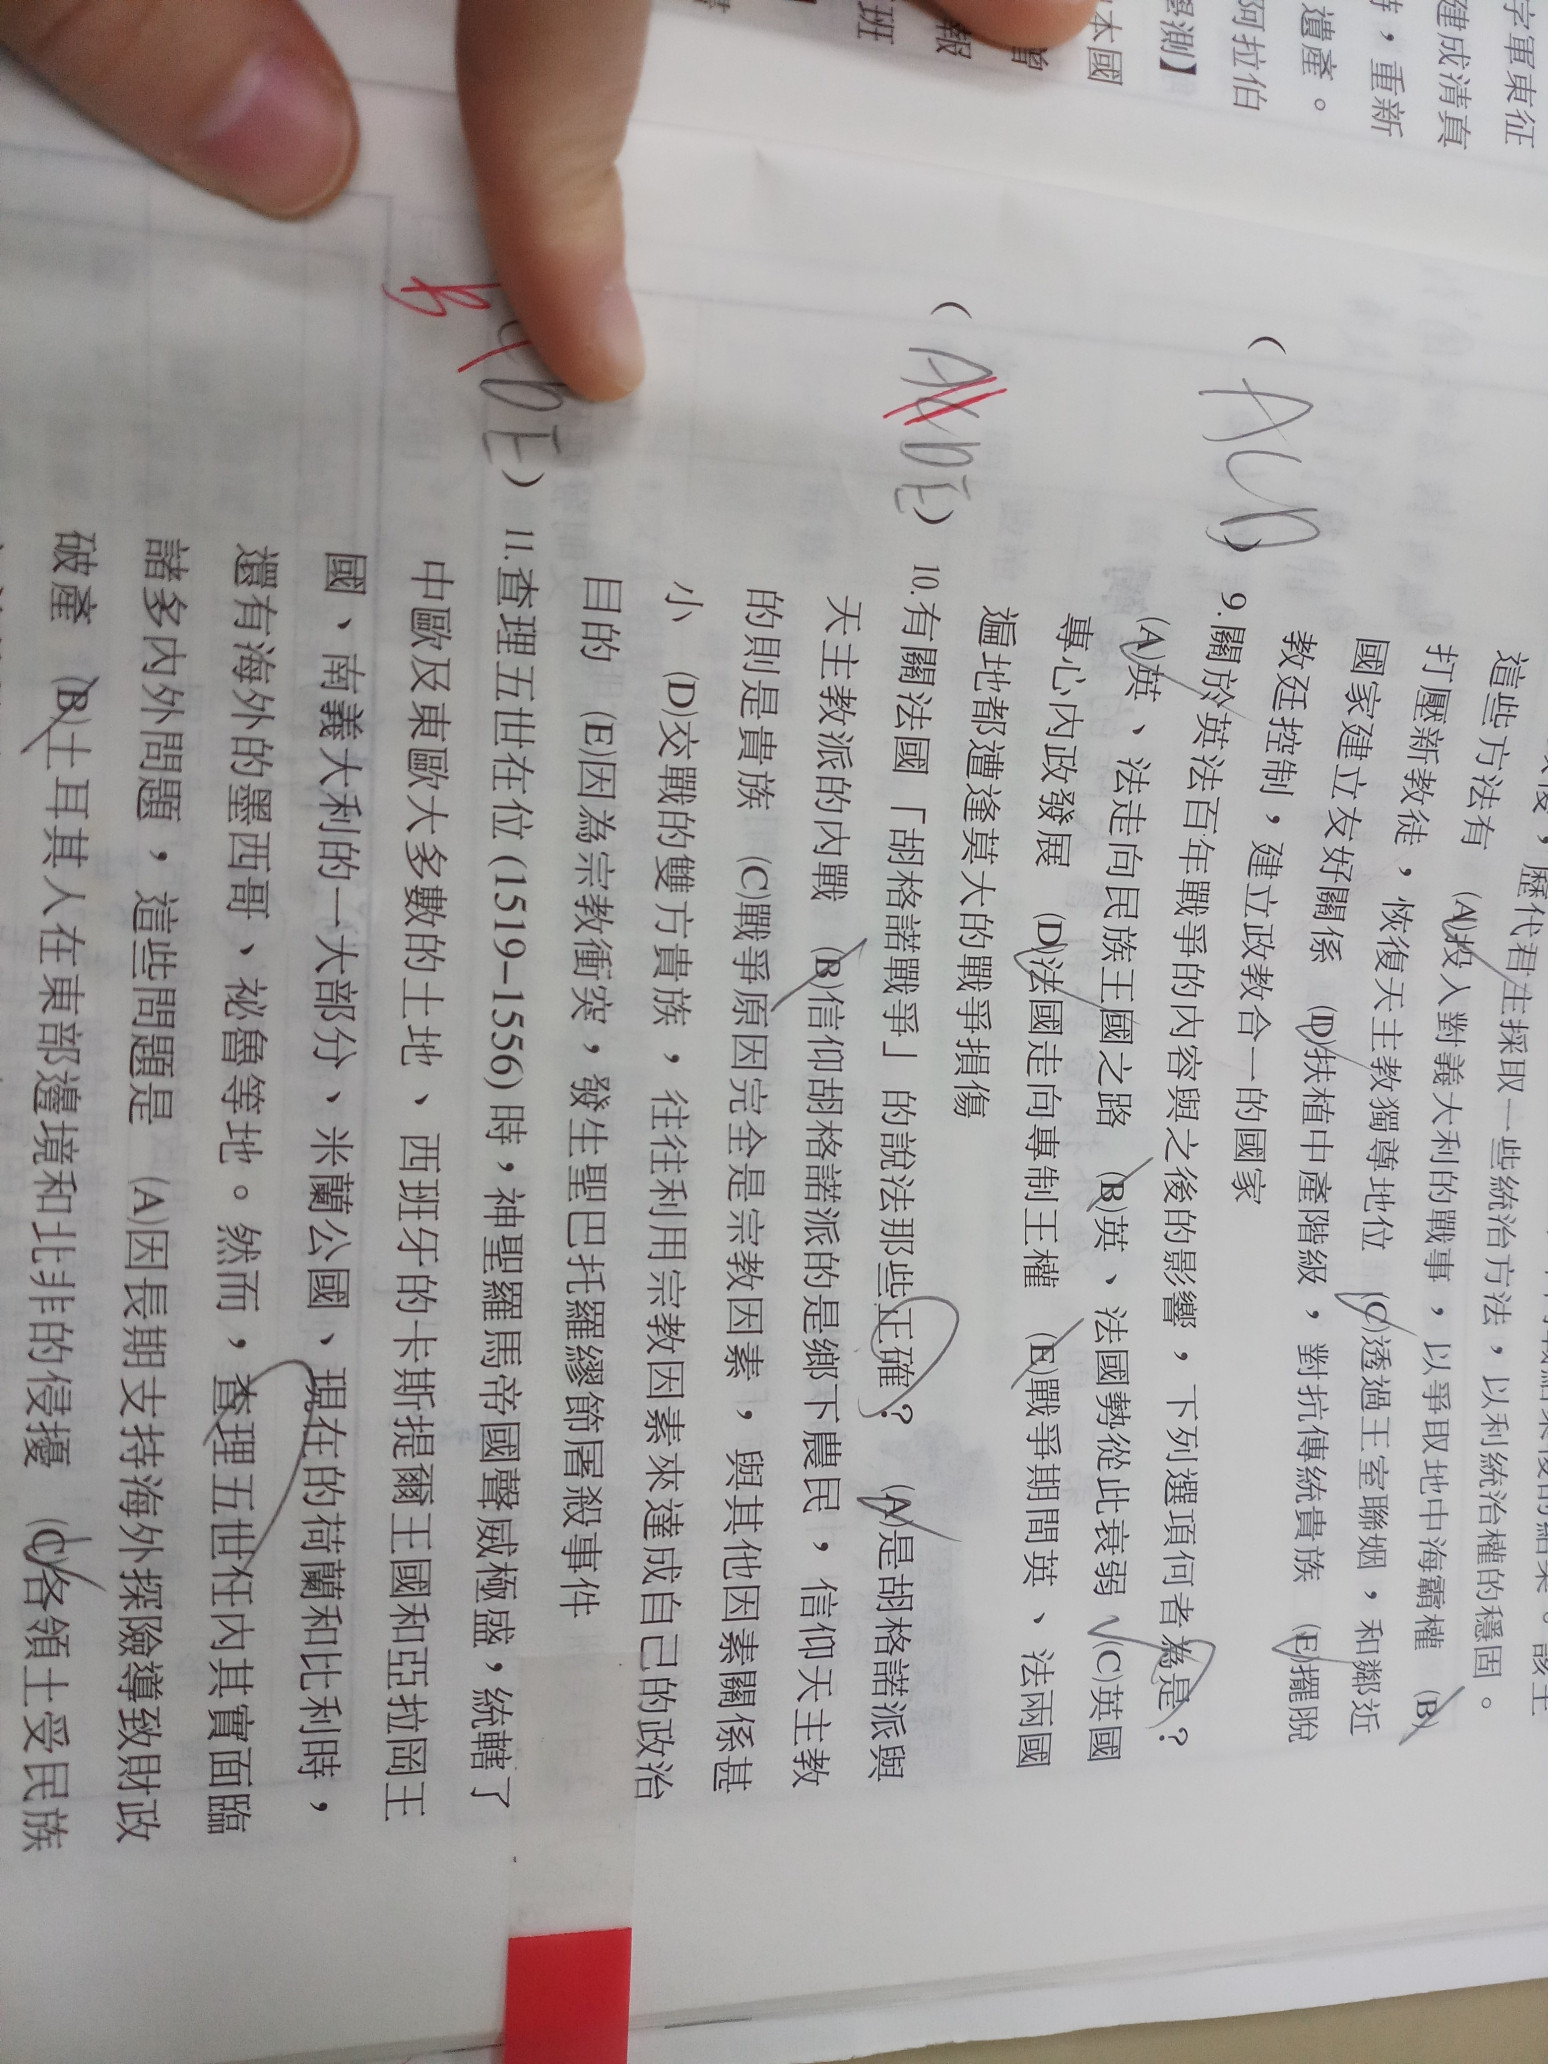 字軍東征
建成清真
，重新
遺產。
阿拉伯
學測】
本國
曾
報
班
，歷代君主採取一些統治方法，以利統治權的穩固。
這些方法有 (A)投入對義大利的戰事，以爭取地中海霸權 (B)
打壓新教徒，恢復天主教獨尊地位 (C)透過王室聯姻，和鄰近
國家建立友好關係 (D)扶植中產階級，對抗傳統貴族 (E)擺脫
教廷控制，建立政教合一的國家
( ACD ) 9.關於英法百年戰爭的內容與之後的影響，下列選項何者為是？
(A)英、法走向民族王國之路 (B)英、法國勢從此衰弱 (C)英國
專心內政發展 (D)法國走向專制王權 (E)戰爭期間英、法兩國
遍地都遭逢莫大的戰爭損傷
( A DE ) 10.有關法國「胡格諾戰爭」的說法那些正確？ (A)是胡格諾派與
天主教派的內戰 (B)信仰胡格諾派的是鄉下農民，信仰天主教
的則是貴族 (C)戰爭原因完全是宗教因素，與其他因素關係甚
小 (D)交戰的雙方貴族，往往利用宗教因素來達成自己的政治
目的 (E)因為宗教衝突，發生聖巴托羅繆節屠殺事件
DE ) 11.查理五世在位 (1519–1556) 時，神聖羅馬帝國聲威極盛，統轄了
B
中歐及東歐大多數的土地、西班牙的卡斯提爾王國和亞拉岡王
國、南義大利的一大部分、米蘭公國、現在的荷蘭和比利時，
還有海外的墨西哥、祕魯等地。然而，查理五世任內其實面臨
諸多內外問題，這些問題是 (A)因長期支持海外探險導致財政
破產 (B)土耳其人在東部邊境和北非的侵擾 (C)各領土受民族